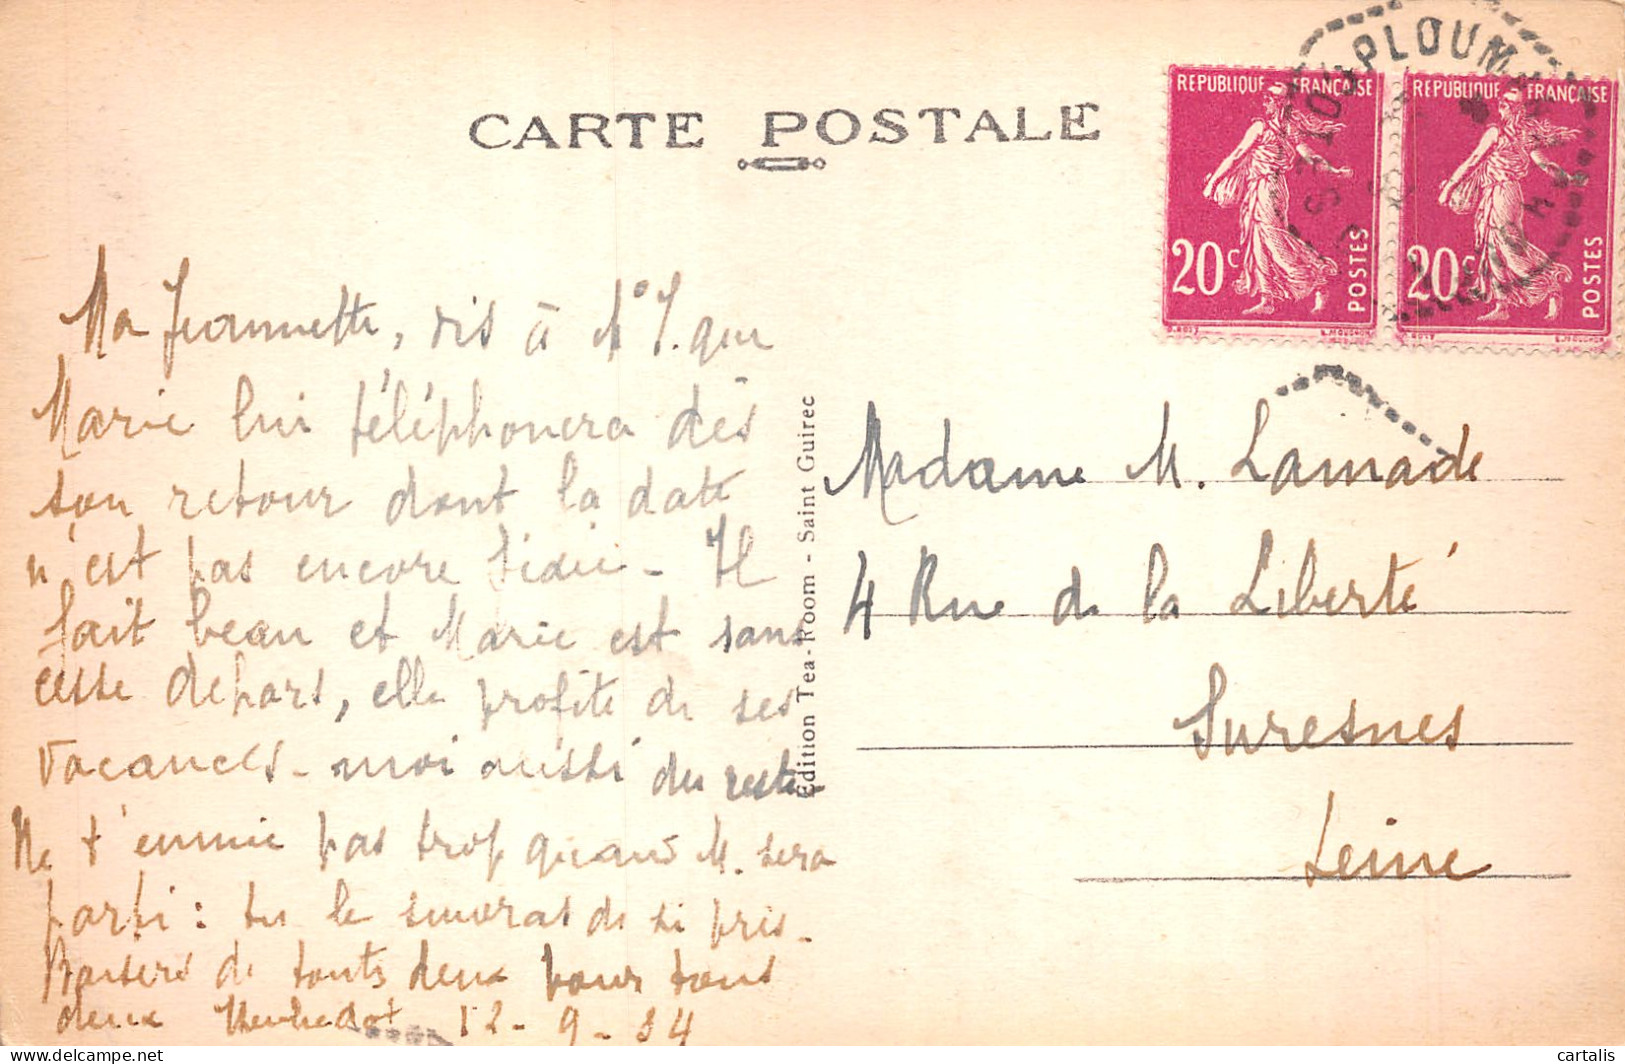 CARTE POSTALE
REPUBLIQUE FRANÇAISE
20c
POSTES
REPUBLIQUE FRANÇAISE
20c
POSTES
PLOUM
Ma Jeannette, dis à que
Marie lui téléphonera dès
son retour dont la date
n'est pas encore fixée - Il
fait beau et Marie est sans
cesse dehors, elle profite de ses
vacances - moi aussi du reste
Ne t'ennuie pas trop quand M. sera
parti : tu le de si près -
Baisers de toutes deux pour tous
deux 12 - 9 - 34
Edition Tea-Room - Saint Guirec
Madame M. Lamade
4 Rue de la Liberté
Suresnes
Seine
cartalis
delcampe.net